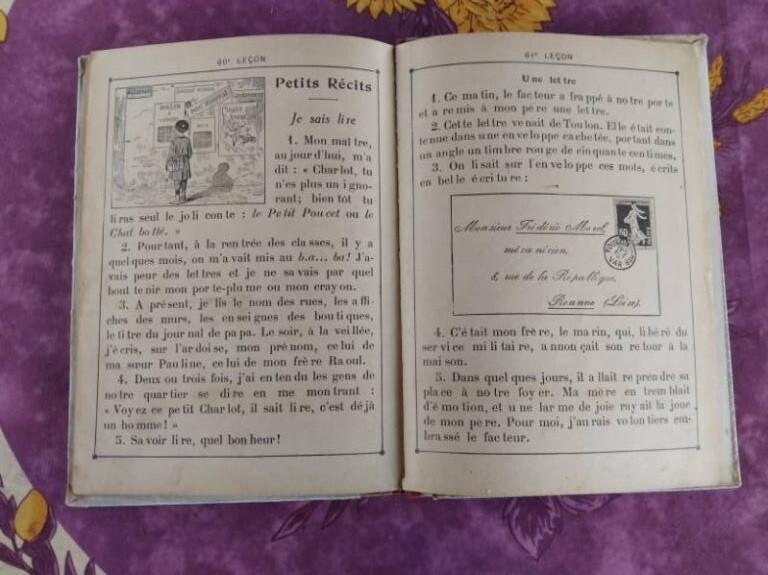 60ᵉ LEÇON
Petits Récits
Je sais lire
1. Mon maî tre,
au jour d'hui, m'a
dit : « Char lot, tu
n'es plus un i gno-
rant; bien tôt tu
li ras seul le jo li con te : le Petit Pou cet ou le
Chat bot té. »
2. Pour tant, à la ren trée des clas ses, il y a
quel ques mois, on m'a vait mis au b.a... ba! J'a-
vais peur des let tres et je ne sa vais par quel
bout te nir mon por te-plu me ou mon cray on.
3. A pré sent, je lis le nom des rues, les affi-
ches des murs, les en sei gnes des bou ti ques,
le ti tre du jour nal de pa pa. Le soir, à la veil lée,
j'é cris, sur l'ar doi se, mon pré nom, ce lui de
ma sœur Pau li ne, ce lui de mon frè re Ra oul.
4. Deux ou trois fois, j'ai en ten du les gens de
no tre quar tier se di re en me mon trant :
« Voy ez ce pe tit Char lot, il sait li re, c'est dé jà
un hom me! »
5. Sa voir li re, quel bon heur!
61ᵉ LEÇON
U ne let tre
1. Ce ma tin, le fac teur a frap pé à no tre por te
et a re mis à mon pè re une let tre.
2. Cet te let tre ve nait de Tou lon. El le é tait con-
te nue dans u ne en ve lop pe ca che tée, por tant dans
un angle un tim bre rou ge de cin quan te cen ti mes.
3. On li sait sur l'en ve lop pe ces mots, é crits
en bel le é cri tu re :
Monsieur Frédéric Morel,
mé ca ni cien,
8, rue de la Ré pu bli que,
Roanne (Loire).
50
4. C'é tait mon frè re, le ma rin, qui, li bé ré du
ser vi ce mi li tai re, a nnon çait son re tour à la
mai son.
5. Dans quel ques jours, il a llait re pren dre sa
pla ce à no tre foy er. Ma mè re en trem blait
d'é mo tion, et u ne lar me de joie ray ait la joue
de mon pè re. Pour moi, j'au rais vo lon tiers em-
bras sé le fac teur.